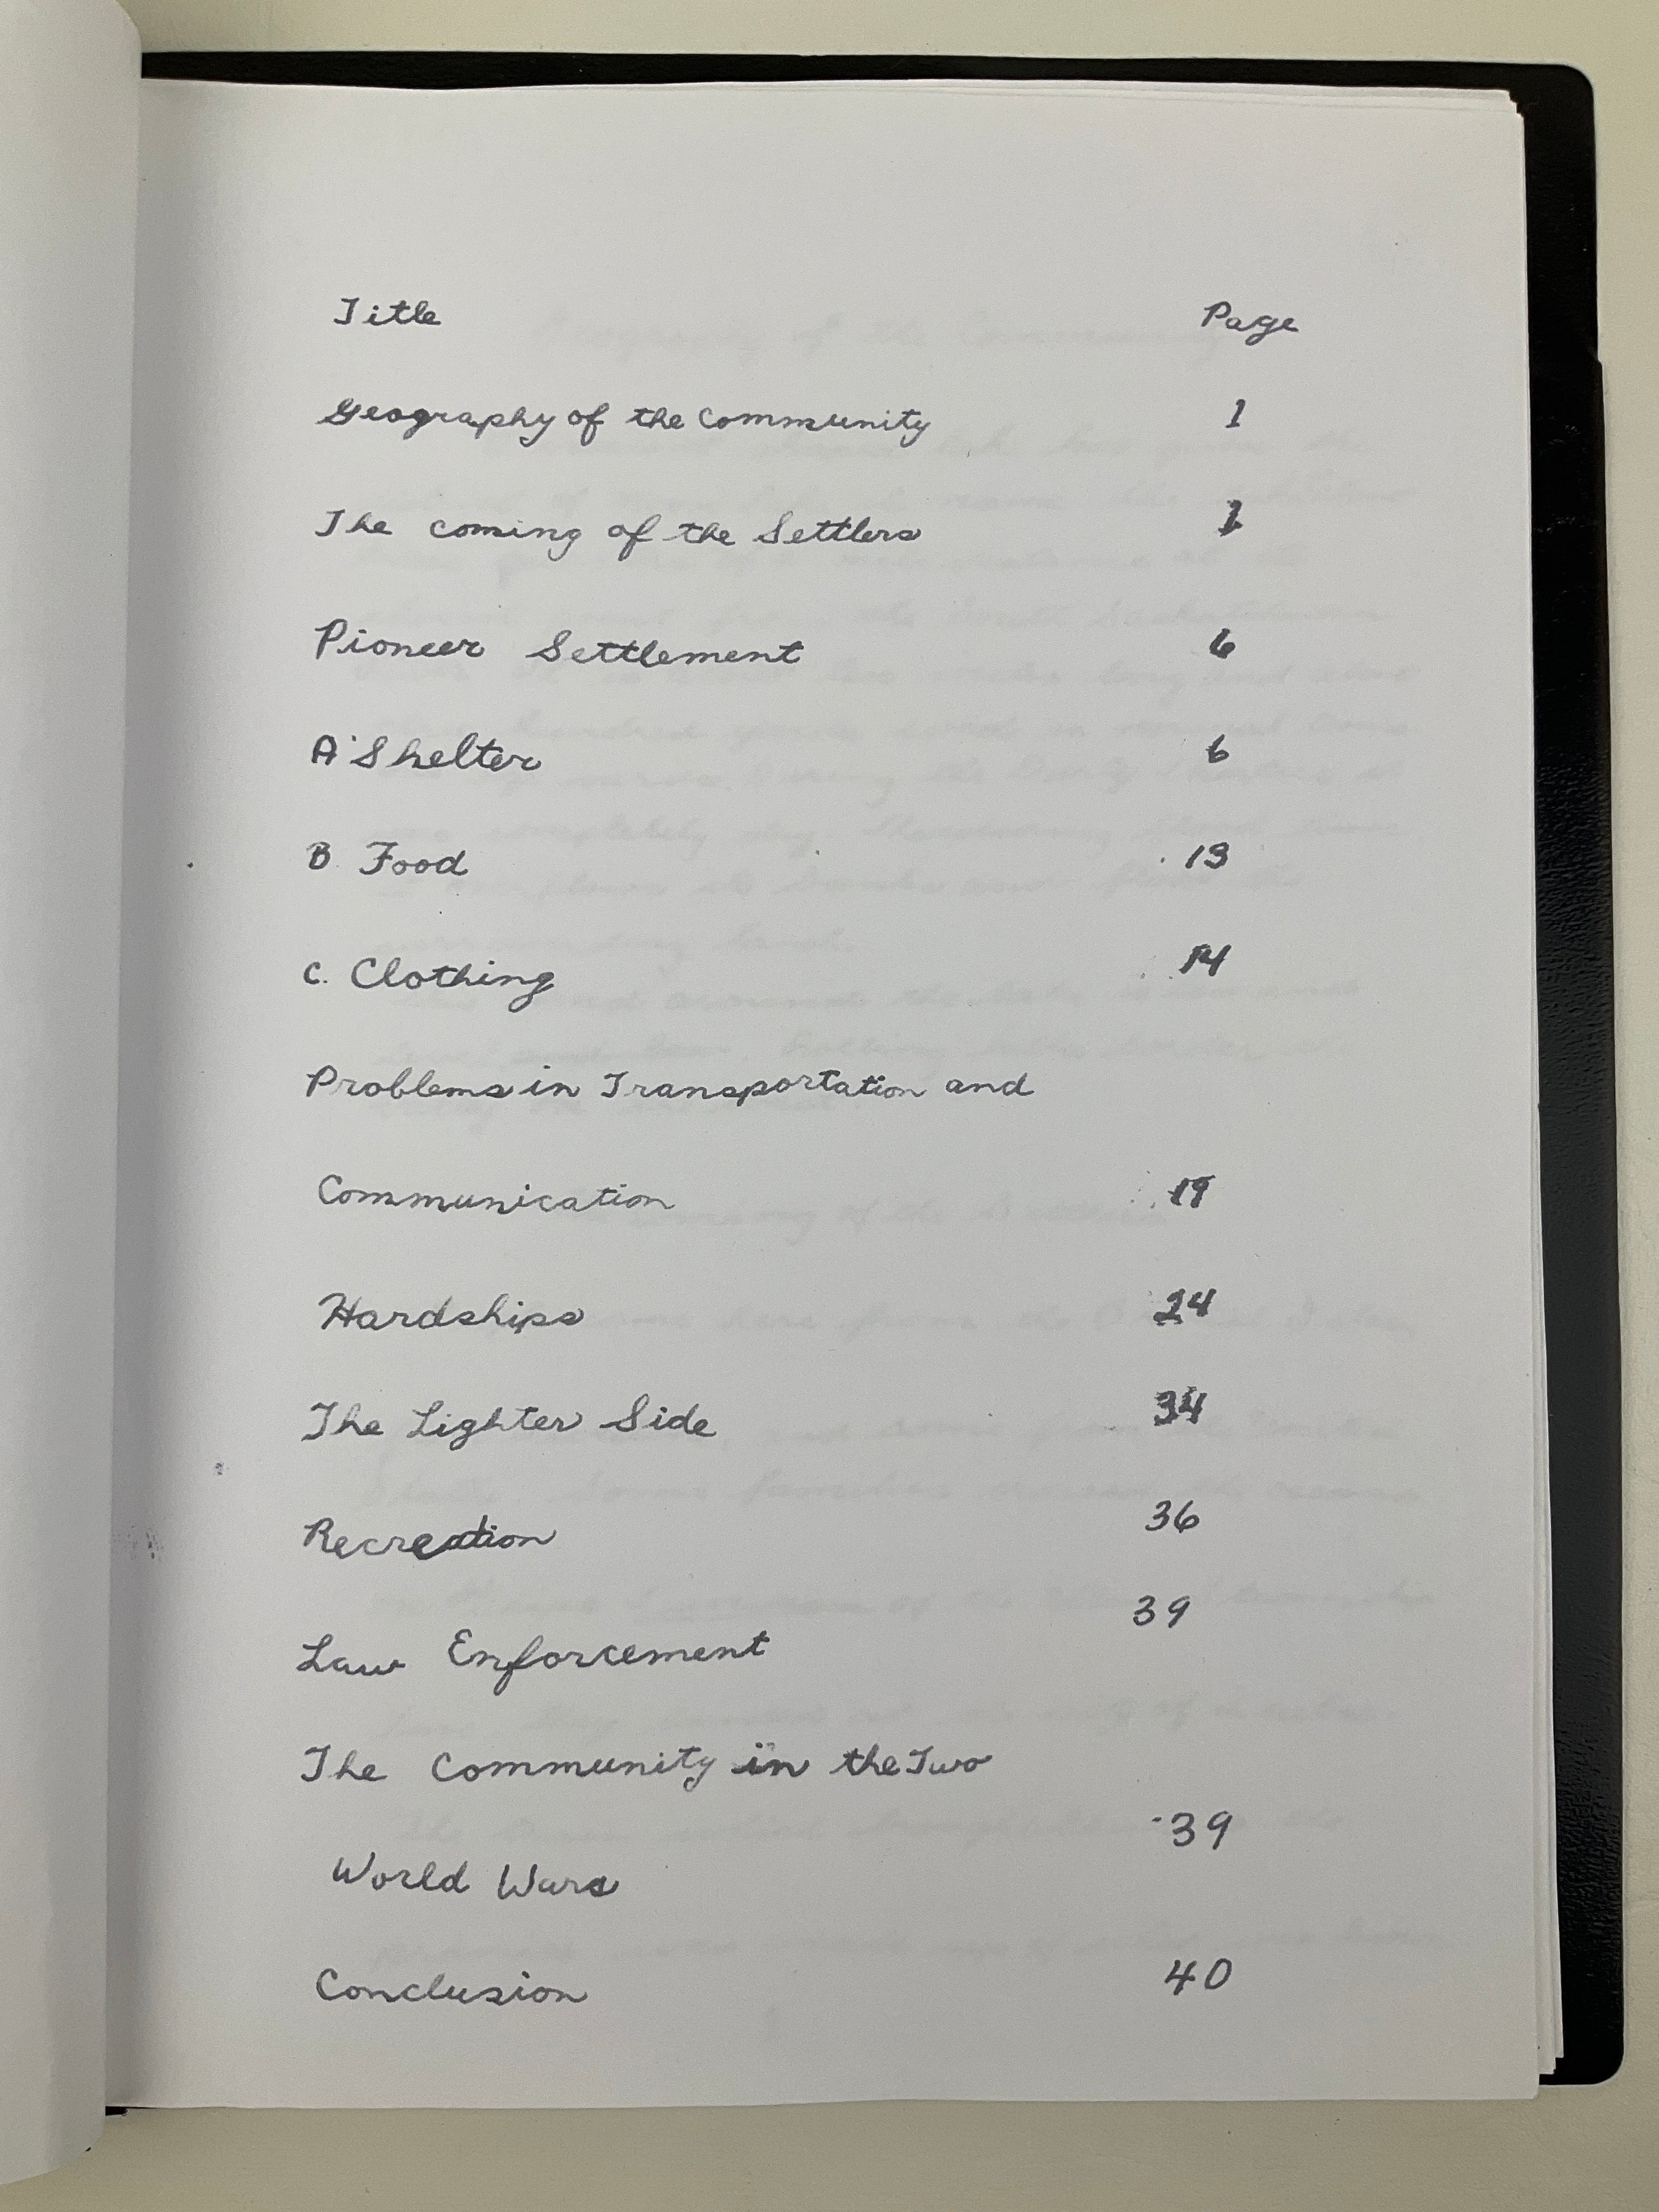 Title Page
Geography of the Community 1
The coming of the Settlers 1
Pioneer Settlement 6
A Shelter 6
B Food 13
C. Clothing 14
Problems in Transportation and
Communication 19
Hardships 24
The Lighter Side 34
Recreation 36
Law Enforcement 39
The Community in the Two
World Wars 39
Conclusion 40